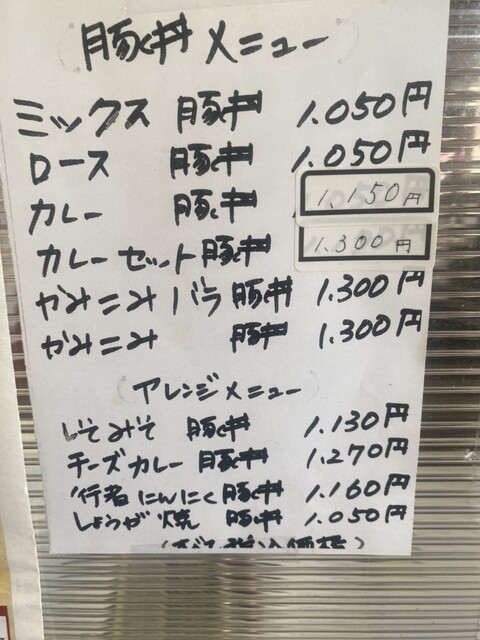 豚丼メニュー
ミックス 豚丼 1.050円
ロース 豚丼 1.050円
カレー 豚丼 1.150円
カレーセット豚丼 1.300円
かみこみバラ豚丼 1.300円
かみこみ 豚丼 1.300円
アレンジメニュー
しそみそ 豚丼 1.130円
チーズカレー豚丼 1.270円
行者にんにく豚丼 1.160円
しょうが焼 豚丼 1.050円
税込価格)